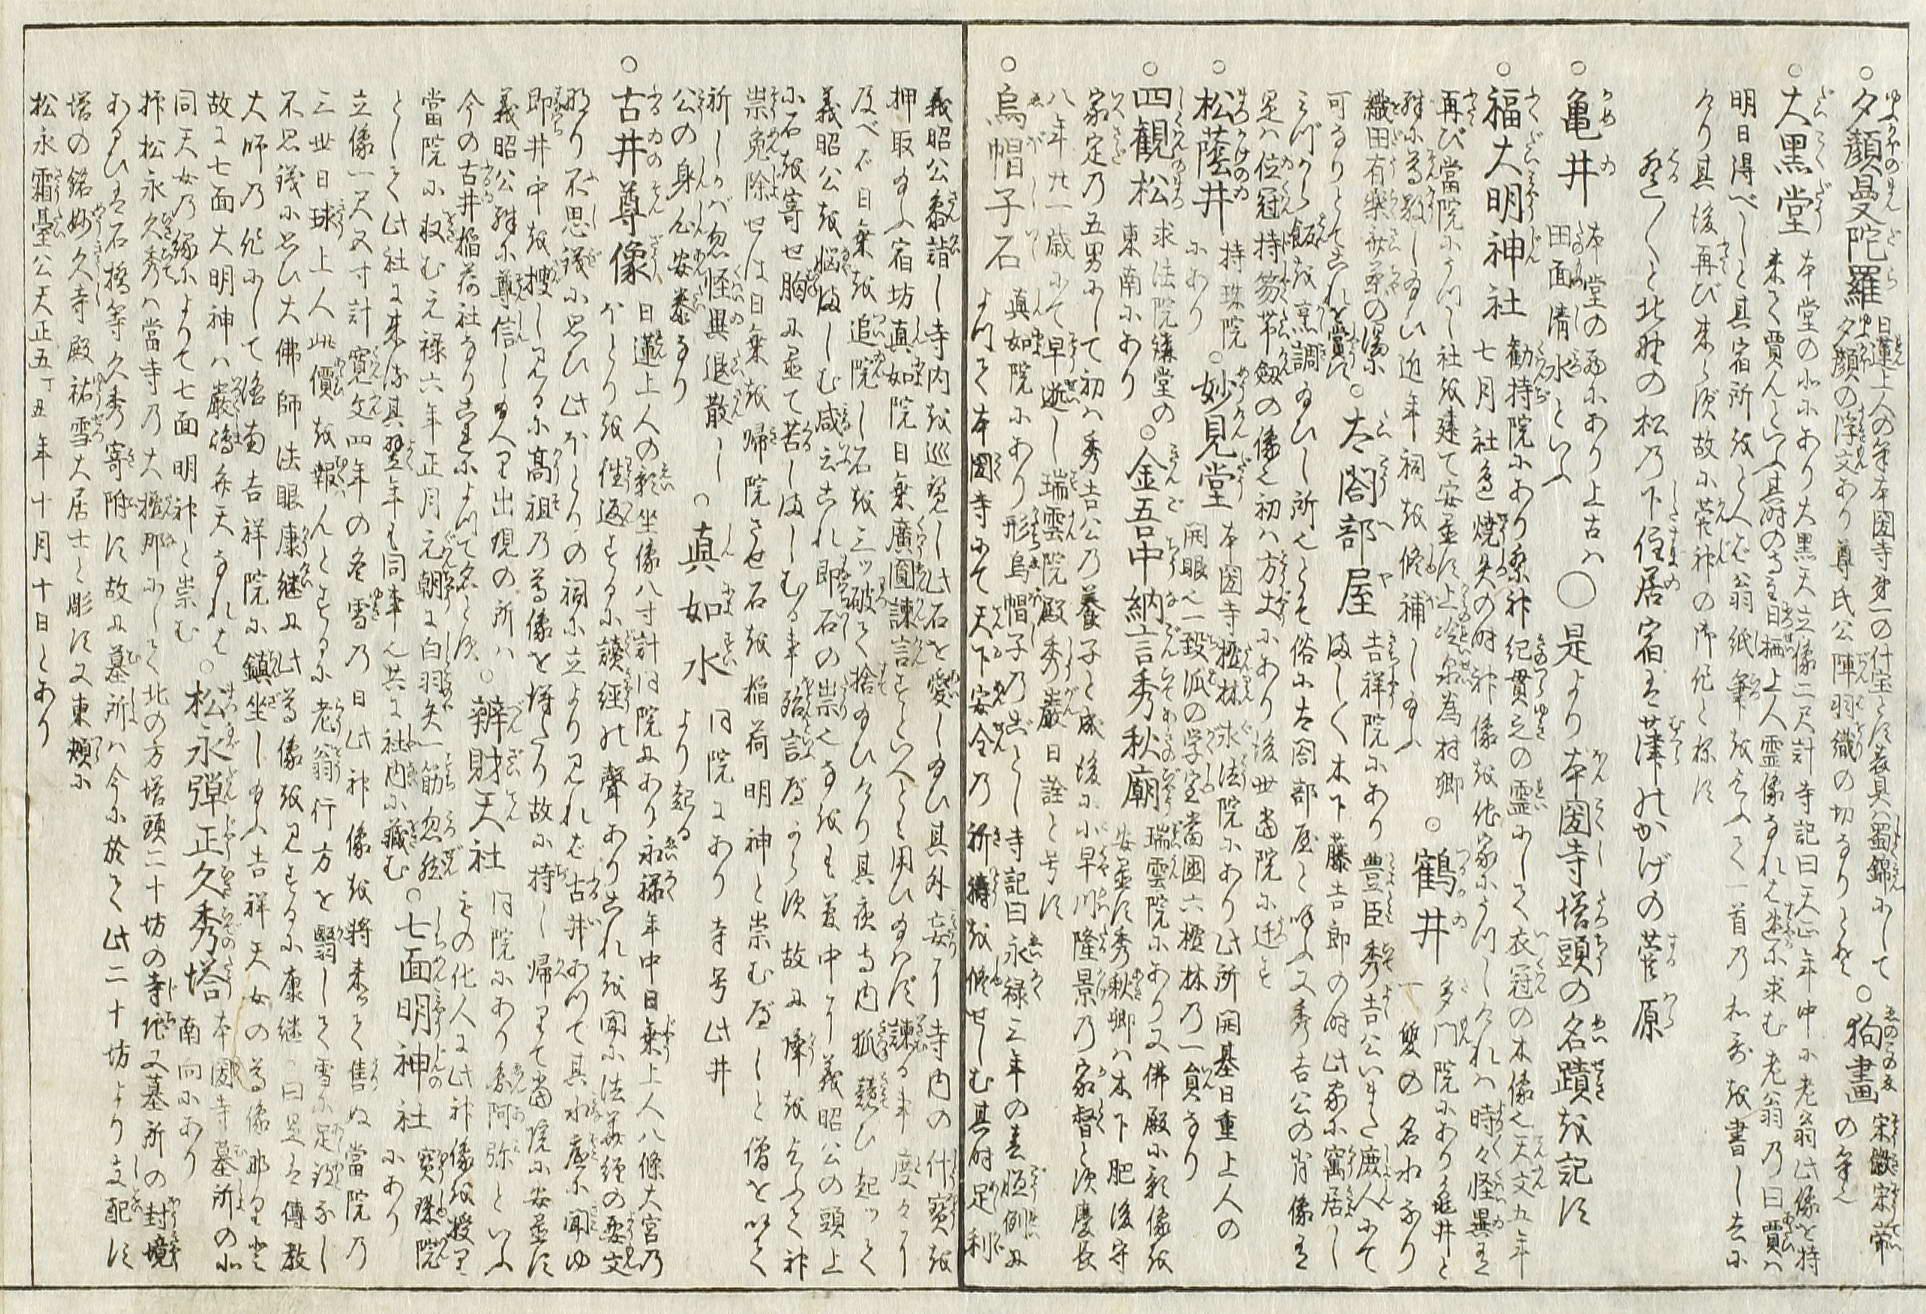 ○夕顔曼陀羅 日蓮上人の筆本圀寺第一の什宝とす表具ハ蜀錦にして ○狗畫 宋徽宗帝の筆也
夕顔の浮文あり尊氏公陣羽織の切なりとぞ
○大黒堂 本堂の北にあり大黒天立像二尺計寺記曰天正年中に老翁此像を持
来て賈んといふ其時の寺主日栖上人霊像なれば迷に求む老翁乃曰賈ハ
明日得べしと其宿所をとへば翁紙筆を乞ふて一首乃和哥を書し去に
けり其後再び来らず故に菅神の御作と称す
遥〱と北野の松乃下住居宿は葎のかげの菅原
○亀井 本堂の西にあり上古ハ
田面清水といふ ○是より本圀寺塔頭の名蹟を記す
○福大明神社 勧持院にあり祭神紀貫之の霊にして衣冠の木像也天文五年
七月社邊焼失の時神像を他家にうつしければ時々怪異ます
再び當院にうつし社を建て安置す上冷泉為村卿
殊に尊敬し給ひ近年祠を修補し給ふ ○鶴井 多門院にあり亀井と
一雙の名水なり
織田有楽斎茶の湯に
可なりとてこれを賞す ○太閤部屋 吉祥院にあり豊臣秀吉公いまだ鹿人にて
ましく木下藤吉郎の時此家に寓居し
みづから飯を烹調給ひし所也とて俗に太閤部屋と呼ふ又秀吉公の肖像ます
是ハ位冠持笏帯劔の像也初ハ方丈にあり後世當院に迁す
○松蔭井 持珠院
にあり ○妙見堂 本圀寺檀林求法院にあり此所開基日重上人の
開眼也一致派の学室當國六檀林乃一員なり
○四観松 求法院講堂の
東南にあり ○金吾中納言秀秋廟 瑞雲院にあり又佛殿に彩像を
安置す秀秋卿ハ木下肥後守
家定乃五男にして初ハ秀吉公乃養子と成後に小早川隆景乃家督と次慶長
八年廿一歳にて早逝し瑞雲院殿秀巌日詮と号す
○烏帽子石 真如院にあり形烏帽子乃ごとし寺記曰永禄三年の春恒例に
よつて本圀寺にて天下安全乃祈祷を修せしむ其時足利
義昭公参詣し寺内を巡覧し此石を愛し給ひ其外妄に寺内の什寳を
押取給ふ宿坊真如院日乗廣圓諫言すといへとも用ひ給はず諫る事度々に
及べば日乗を追院し石を三ッ破て捨給ひけり其夜寺内狐魅ひ起ッて
義昭公を悩ましむ咸云これ即石の祟也なをも夢中に義昭公の頭上
に石を寄せ胸に置て苦しましむる事殆言尽からず故に降を乞ふて神
祟免除せんは日乗を帰院させ石を稲荷明神と崇む尽しと僧を以て
祈しかば忽怪異退散し
公の身心安泰なり ○真如水 同院にあり寺号此井
より起る
○古井尊像 日蓮上人の彩坐像八寸計同院にあり永禄年中日乗上人八條大宮乃
ほとりを往返するに讀經の聲ありこれを聞に法華經の要文
なり不思議に思ひ此ほとりの祠に立より見れば古井あつて其水底に聞ゆ
即井中を捜し見るに高祖乃尊像を得たり故に持し帰りて當院に安置す
義昭公殊に尊信し給へり出現の所ハ
今の古井稲荷社なり是によつて名とす ○辨財天社 同院にあり参阿弥といふ
ものの化人に此神像を授り
當院に収む元禄六年正月元朝に白羽矢一筋忽然
として此社に来る其翌年も同事也共に社内に藏む ○七面明神社 寳珠院
にあり
立像一尺又寸計寛文四年の冬雪乃日此神像を將来して售ぬ當院乃
三世日球上人此價を報んとするに老翁行方を翳して雪に足跡なし
不思議に思ひ大佛師法眼康継に此尊像を見するに康継曰是は傳教
大師の作にして洛南吉祥院に鎮坐し給ふ吉祥天女の尊像那りと
故に七面大明神ハ嚴嶋弁天なれば
同天女乃縁によりて七面明神と崇む ○松永彈正久秀塔 本圀寺墓所の北
南向にあり
抑松永久秀ハ當寺乃大檀那にして北の方塔頭二十坊の寺地又墓所の封境
あるひは石橋等久秀寄附す故に墓所ハ今に於て此二十坊より支配す
塔の銘妙久寺殿祐雪大居士と彫す又東頬に
松永霜臺公天正五丁丑年十月十日とあり